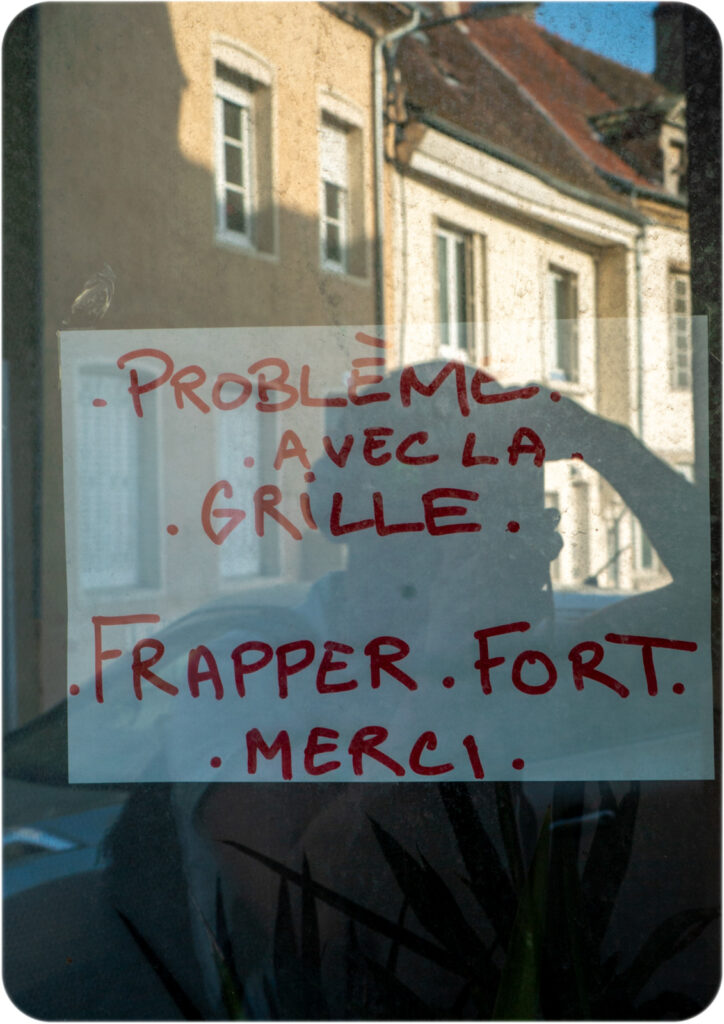 .PROBLÈME.
.AVEC LA.
.GRiLLE.
.FRAPPER.FORT.
.MERCI.